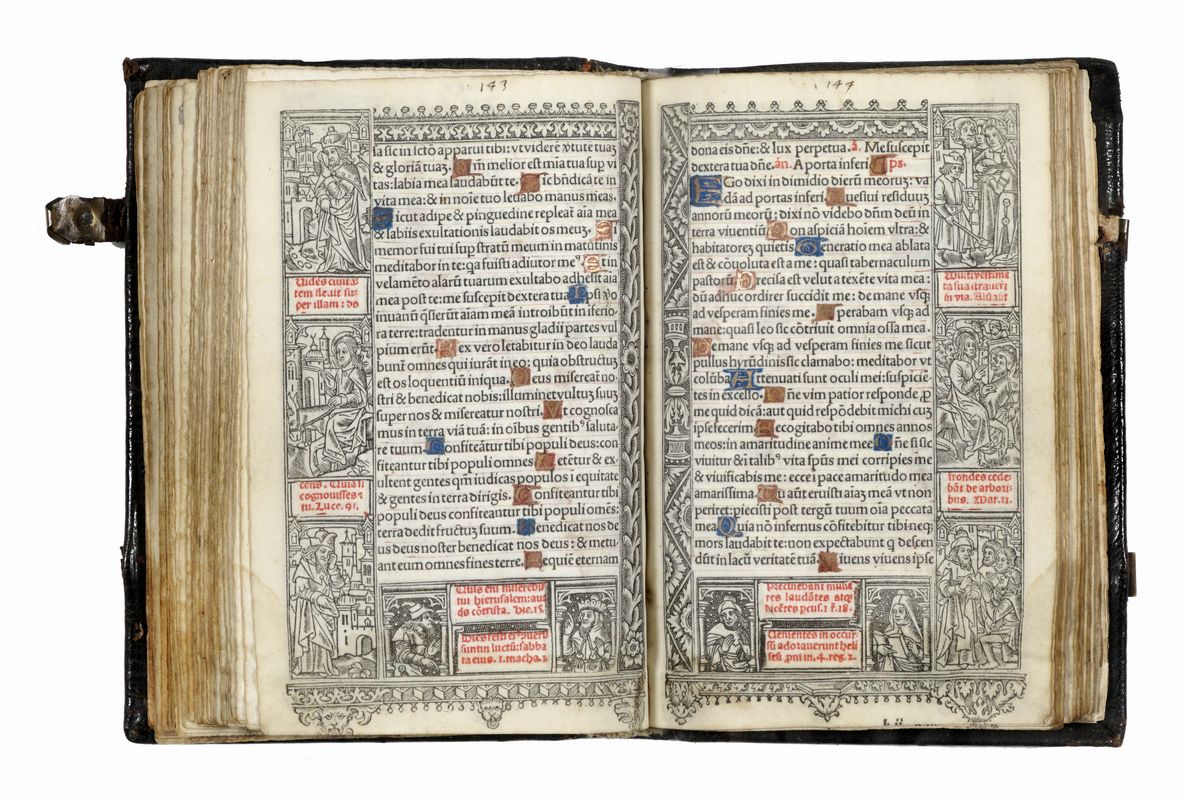 143
sa sic in scto apparui tibi: vt viderē v̓tutē tuaʒ
& gloriā tuaʒ. Qm̄ melior est mia tua sup vi
tas: labia mea laudabūt te. Sic bn̄dicā te in
vita mea: & in noīe tuo leuabo manus meas.
Sicut adipe & pinguedine repleat̄ aīa mea
& labiis exultationis laudabit os meuʒ. Si
memor fui tui sup stratū meum in matutinis
meditabor in te: qa fuisti adiutor me⁹. Et in
velamēto alarū tuarum exultabo adhesit aīa
mea post te: me suscepit dextera tua. Ipsi v̓o
inuanū q̄sierūt aīam meā introibūt in īferio
ra terre: tradentur in manus gladii partes vul
pium erūt. Rex vero letabitur in deo lauda
bunt̄ omnes qui iurāt in eo: quia obstructuʒ
est os loquentiū iniqua. Deus misereat̄ no
stri & benedicat nobis: illuminet vultuʒ suuʒ
super nos & misereatur nostri. Vt cognosca
mus in terra viā tuā: in oībus gentib⁹ saluta
re tuum. Confiteātur tibi populi deus: con
fiteantur tibi populi omnes. Letētur & ex
ultent gentes qm̄ iudicas populos ī equitate
& gentes in terra dirigis. Confiteantur tibi
populi deus confiteantur tibi populi omēs:
terra dedit fructuʒ suum. Benedicat nos de
us deus noster benedicat nos deus: & metu
ant eum omnes fines terre. Requiē eternam
Videns ciuita-
tem fleuit su-
per illam: do
cens. Quia si
cognouisses ⁊
tu. Luce. 91.
Quis em̄ miserebi-
tur hierusalem: aut
qs cōtrista. Hie. 15.
Dies festi ei⁹ ↄuersi
sunt in luctū: sabba
ta eius. 1. macha. 1
144
dona eis dn̄e: & lux perpetua. ā. Me suscepit
dextera tua dn̄e. ān. A porta inferi. ps.
EGo dixi in dimidio dierū meoruʒ: va
dā ad portas inferi. Quesiui residuuʒ
annorū meorū: dixi nō videbo dn̄m deū in
terra viuentiū. Non aspiciā hoīem vltra: &
habitatoreʒ quietis. Generatio mea ablata
est & cōuoluta est a me: quasi tabernaculum
pastorū. Precisa est velut a texēte vita mea:
dū adhuc ordirer succidit me: de mane vsq̄
ad vesperam finies me. Sperabam vsq̄ ad
mane: quasi leo sic cōtriuit omnia ossa mea.
De mane vsq̄ ad vesperam finies me sicut
pullus hyrūdinis sic clamabo: meditabor vt
colūba. Attenuati sunt oculi mei: suspiciē
tes in excelso. Dn̄e vim patior responde ꝓ
me quid dicā: aut quid respōdebit michi cuʒ
ipse fecerim. Recogitabo tibi omnes annos
meos: in amaritudine anime mee. Dn̄e si sic
viuitur & ī talib⁹ vita spūs mei corripies me
& viuificabis me: ecce ī pace amaritudo mea
amarissima. Tu aūt eruisti aīaʒ meā vt non
periret: ꝓiecisti post tergū tuum oīa peccata
mea. Quia nō infernus cōfitebitur tibi neq̄
mors laudabit te: non expectabunt q̄ descen
dūt in lacū veritatē tuā. Viuens viuens ipse
Multi vestimē
ta sua strauerūt
in via. Alii aūt
frondes cede-
bāt de arbori-
bus. Mar. 11.
Precinebant mulie
res laudātes atq̄
dicētes ꝑcus. 1 r̄. 18.
Uenientes in occur-
sū adorauerunt heli
seū ꝓni in. 4. reg. 2.